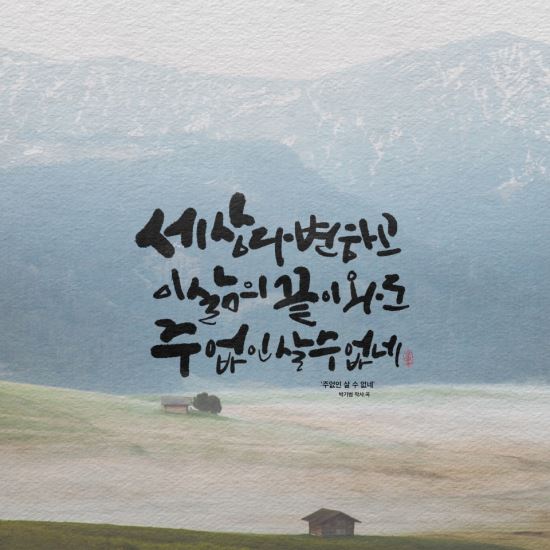 세상 다 변하고
이 삶의 끝이 와도
주 없인 살 수 없네
'주없인 살 수 없네'
박기범 작사.곡